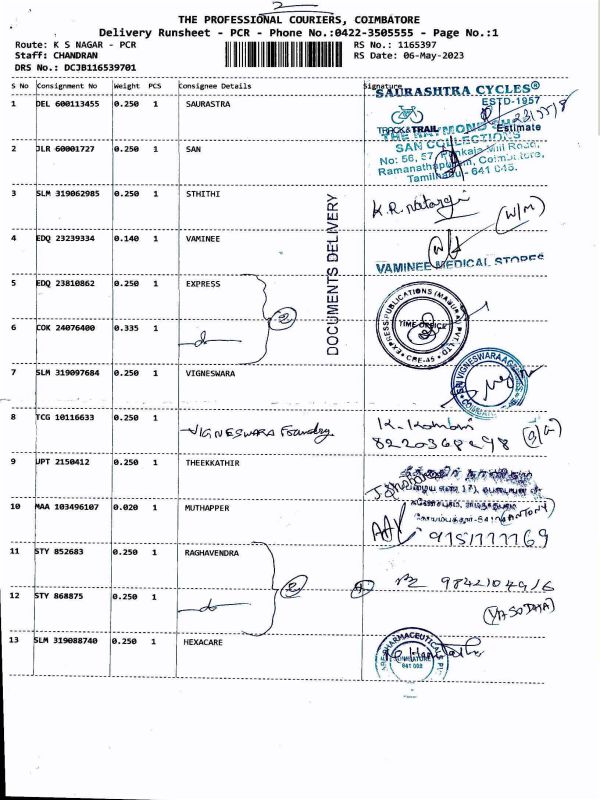 2
THE PROFESSIONAL COURIERS, COIMBATORE
Delivery Runsheet - PCR - Phone No.:0422-3505555 - Page No.:1
Route: K S NAGAR - PCR RS No.: 1165397
Staff: CHANDRAN RS Date: 06-May-2023
DRS No.: DCJB116539701
S No Consignment No Weight PCS Consignee Details Signature
SAURASHTRA CYCLES®
ESTD-1957
1 DEL 600113455 0.250 1 SAURASTRA
TRACK&TRAIL Estimate
THE RAYMOND SHOP
2 JLR 60001727 0.250 1 SAN
SAN COLLECTIONS
No: 56, 57, Pankaja Mill Road,
Ramanathapuram, Coimbatore,
Tamilnadu - 641 045.
3 SLM 319062985 0.250 1 STHITHI
K.R. Natraj
(W/M)
4 EDQ 23239334 0.140 1 VAMINEE
VAMINEE MEDICAL STORES
DOCUMENTS DELIVERY
5 EDQ 23810862 0.250 1 EXPRESS
EXPRESS PUBLICATIONS (MADURAI) PVT. LTD
TIME OFFICE
CBE-45
2
6 COK 24076400 0.335 1 do
7 SLM 319097684 0.250 1 VIGNESWARA
SRI VIGNESWARA AGENCIES
COIMBATORE
8 TCG 10116633 0.250 1 VIGNESWARA Foundry
9 JPT 2150412 0.250 1 THEEKKATHIR
10 MAA 103496107 0.020 1 MUTHAPPER
(ANTONY)
11 STY 852683 0.250 1 RAGHAVENDRA
2
12 STY 868875 0.250 1 do
(YASODHA)
13 SLM 319088740 0.250 1 HEXACARE
PHARMACEUTICALS
COIMBATORE